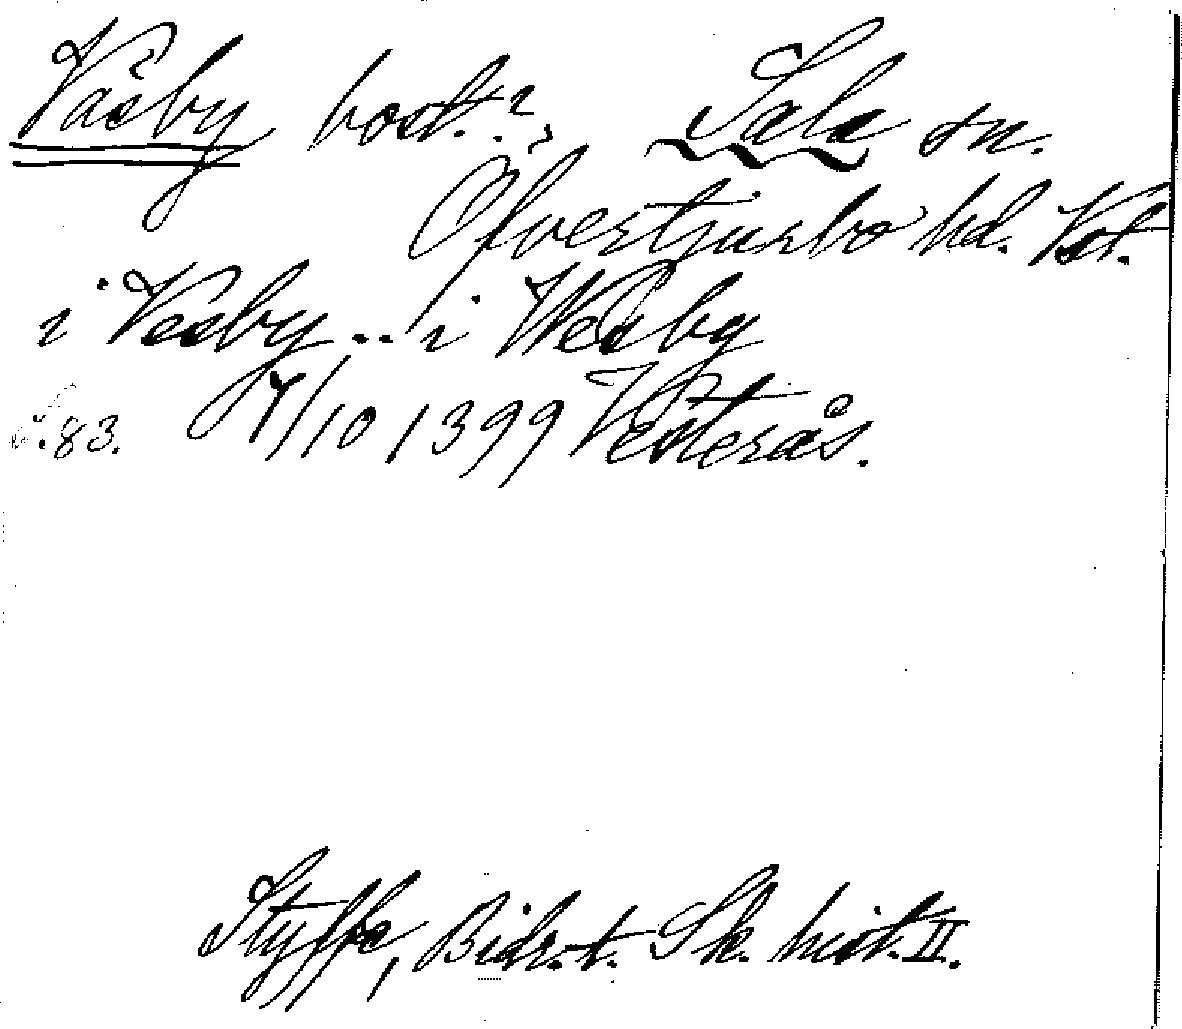 Väsby bost.?, Sala sn.
Öfvertjurbo hd. Vsl.
i Vesby .. i Wesby
s. 83. 7/10 1399 Vesterås.
Styffe, Bidr. t. Sk. hist. II.